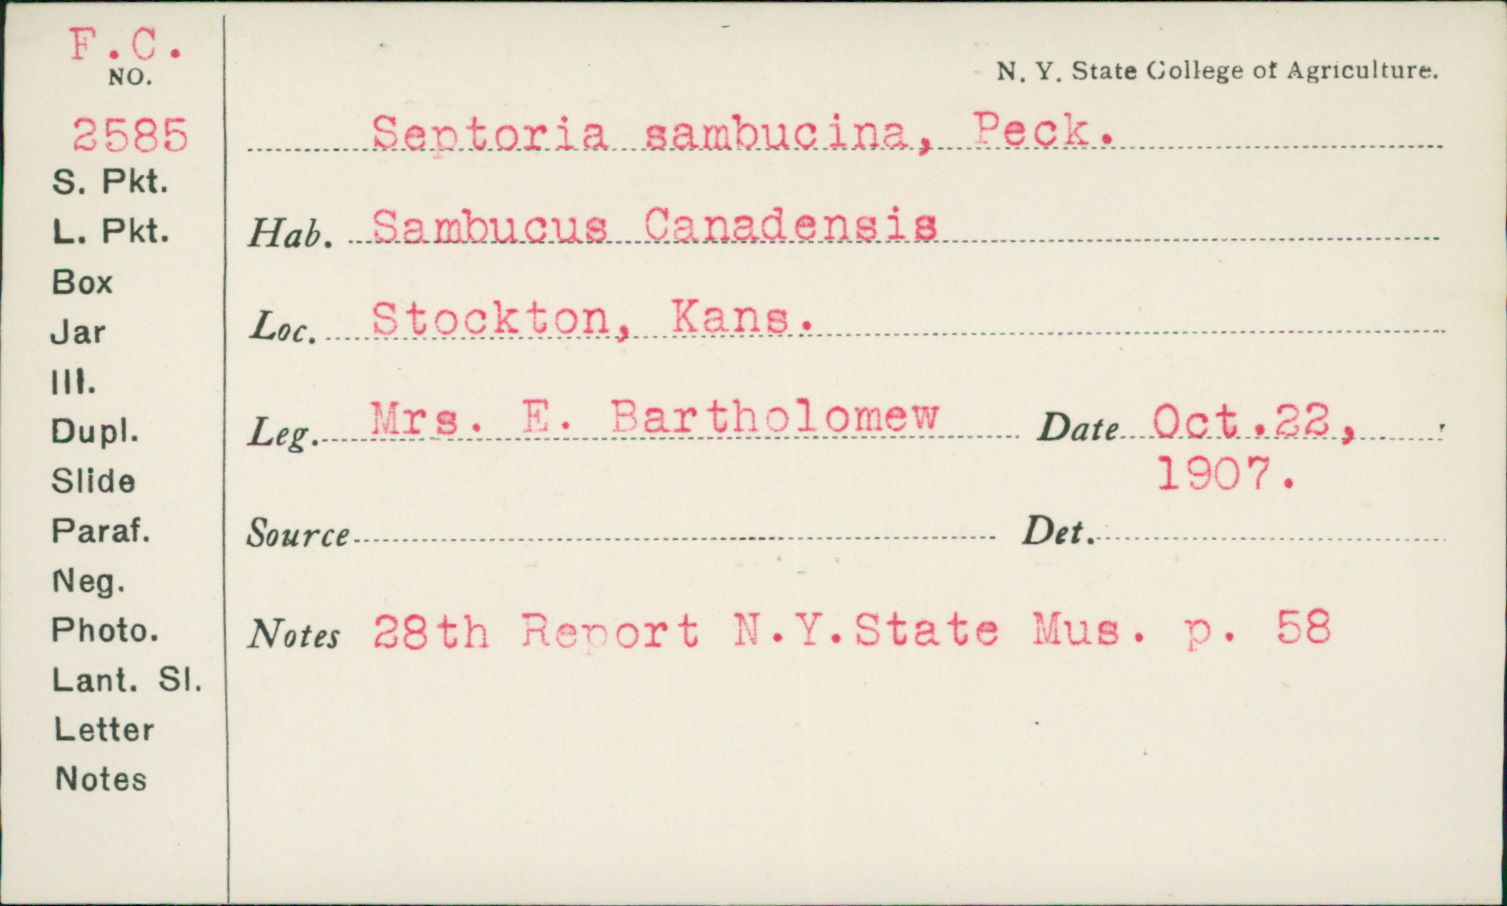 F.C.
NO.
2585
S. Pkt.
L. Pkt.
Box
Jar
Ill.
Dupl.
Slide
Paraf.
Neg.
Photo.
Lant. Sl.
Letter
Notes
N. Y. State College of Agriculture.
Septoria sambucina, Peck.
Hab. Sambucus Canadensis
Loc. Stockton, Kans.
Leg. Mrs. E. Bartholomew Date Oct.22,
1907.
Source Det.
Notes 28th Report N.Y.State Mus. p. 58